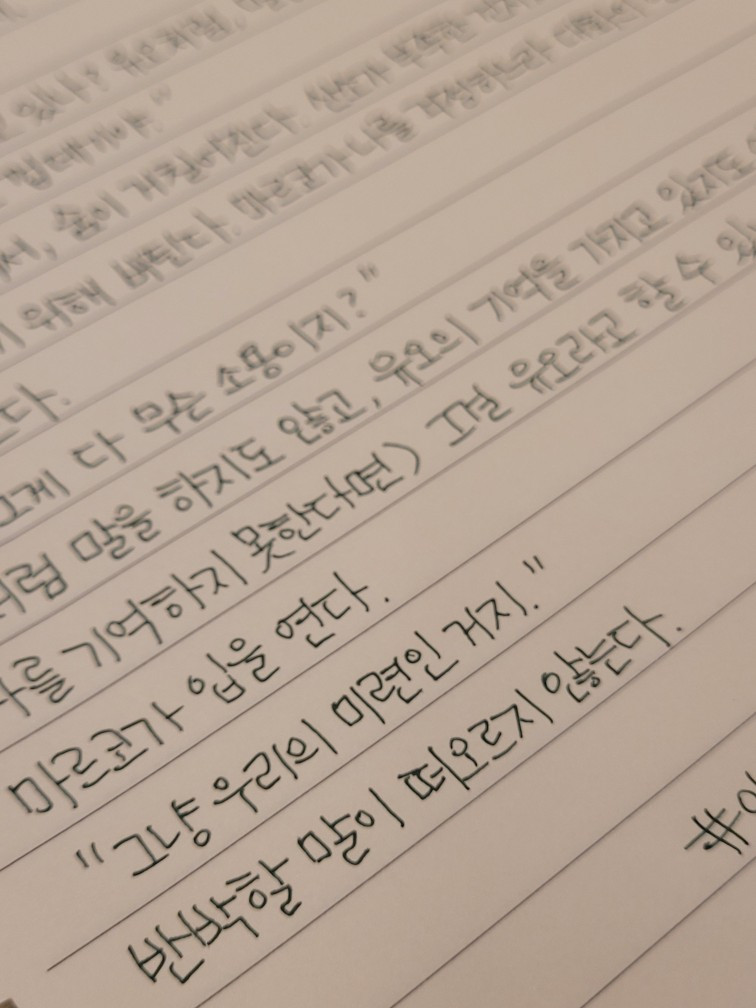 있나? 유오처럼,
껍데기야."
서, 숨이 거칠어진다. 산소가 부족한
위해 버틴다. 마르코가 나를 걱정하느라
다.
그게 다 무슨 소용이지?"
처럼 말을 하지도 않고, 유오의 기억을 가지고 있지도
나를 기억하지 못한다면) 그걸 유오라고 할 수 있
마르코가 입을 연다.
"그냥 우리의 미련인 거지."
반박할 말이 떠오르지 않는다.
#이